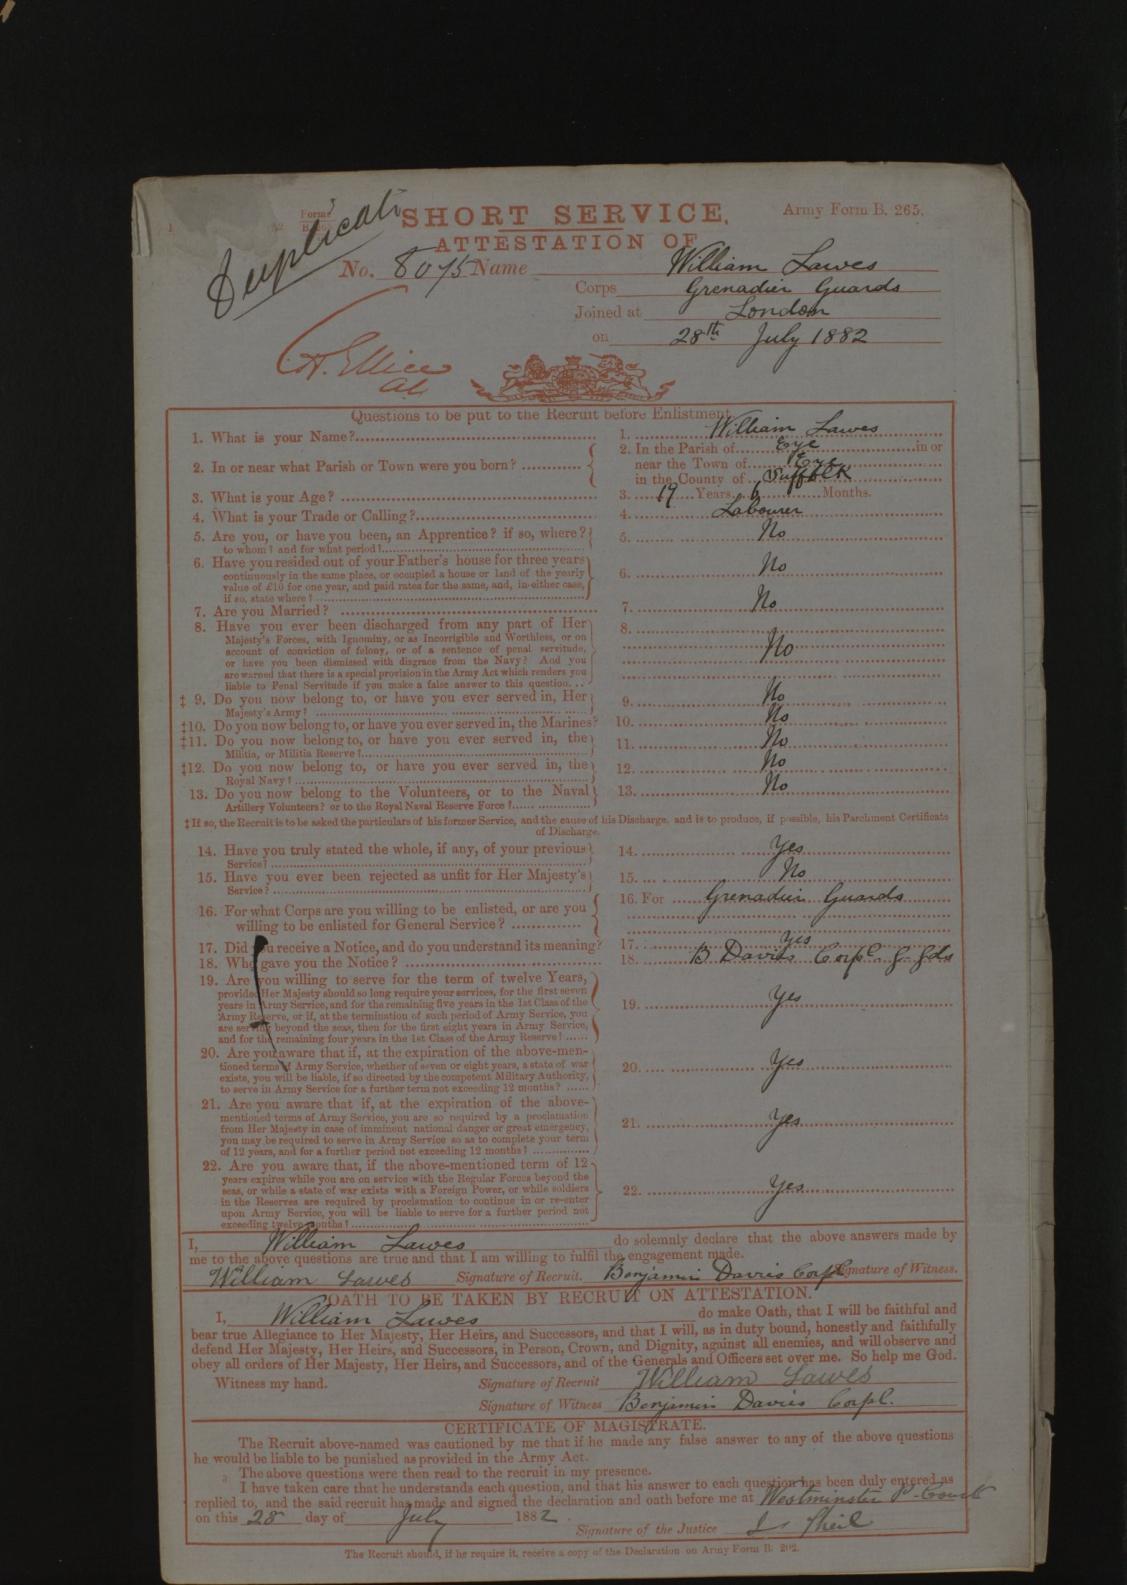 Duplicate
SHORT SERVICE.
Army Form B. 265.
ATTESTATION OF
No. 8075 Name William Lawes
Corps Grenadier Guards
Joined at London
on 28th July 1882
Questions to be put to the Recruit before Enlistment.
1. What is your Name? 1. William Lawes
2. In or near what Parish or Town were you born? 2. In the Parish of Eye in or
near the Town of Eye
in the County of Suffolk
3. What is your Age? 3. 19 Years 6 Months.
4. What is your Trade or Calling? 4. Labourer
5. Are you, or have you been, an Apprentice? if so, where? 5. No
to whom? and for what period?
6. Have you resided out of your Father's house for three years 6. No
continuously in the same place, or occupied a house or land of the yearly
value of £10 for one year, and paid rates for the same, and, in either case,
if so, state where?
7. Are you Married? 7. No
8. Have you ever been discharged from any part of Her 8. No
Majesty's Forces, with Ignominy, or as Incorrigible and Worthless, or on
account of conviction of felony, or of a sentence of penal servitude,
or have you been dismissed with disgrace from the Navy? And you
are warned that there is a special provision in the Army Act which renders you
liable to Penal Servitude if you make a false answer to this question.
‡ 9. Do you now belong to, or have you ever served in, Her 9. No
Majesty's Army?
‡10. Do you now belong to, or have you ever served in, the Marines? 10. No
‡11. Do you now belong to, or have you ever served in, the 11. No
Militia, or Militia Reserve?
‡12. Do you now belong to, or have you ever served in, the 12. No
Royal Navy?
13. Do you now belong to the Volunteers, or to the Naval 13. No
Artillery Volunteers? or to the Royal Naval Reserve Force?
‡ If so, the Recruit is to be asked the particulars of his former Service, and the cause of his Discharge, and is to produce, if possible, his Parchment Certificate
of Discharge.
14. Have you truly stated the whole, if any, of your previous 14. Yes
Service?
15. Have you ever been rejected as unfit for Her Majesty's 15. No
Service?
16. For what Corps are you willing to be enlisted, or are you 16. For Grenadier Guards
willing to be enlisted for General Service?
17. Did you receive a Notice, and do you understand its meaning? 17. Yes
18. Who gave you the Notice? 18. B Davies Corpl. G. Gds
19. Are you willing to serve for the term of twelve Years, 19. Yes
provided Her Majesty should so long require your services, for the first seven
years in Army Service, and for the remaining five years in the 1st Class of the
Army Reserve, or if, at the termination of such period of Army Service, you
are serving beyond the seas, then for the first eight years in Army Service,
and for the remaining four years in the 1st Class of the Army Reserve?
20. Are you aware that if, at the expiration of the above-men- 20. Yes
tioned terms of Army Service, whether of seven or eight years, a state of war
exists, you will be liable, if so directed by the competent Military Authority,
to serve in Army Service for a further term not exceeding 12 months?
21. Are you aware that if, at the expiration of the above- 21. Yes
mentioned terms of Army Service, you are so required by a proclamation
from Her Majesty in case of imminent national danger or great emergency,
you may be required to serve in Army Service so as to complete your term
of 12 years, and for a further period not exceeding 12 months?
22. Are you aware that, if the above-mentioned term of 12 22. Yes
years expires while you are on service with the Regular Forces beyond the
seas, or while a state of war exists with a Foreign Power, or while soldiers
in the Reserves are required by proclamation to continue in or re-enter
upon Army Service, you will be liable to serve for a further period not
exceeding twelve months?
I, William Lawes do solemnly declare that the above answers made by
me to the above questions are true and that I am willing to fulfil the engagement made.
William Lawes Signature of Recruit. Benjamin Davies Corpl Signature of Witness.
OATH TO BE TAKEN BY RECRUIT ON ATTESTATION.
I, William Lawes do make Oath, that I will be faithful and
bear true Allegiance to Her Majesty, Her Heirs, and Successors, and that I will, as in duty bound, honestly and faithfully
defend Her Majesty, Her Heirs, and Successors, in Person, Crown, and Dignity, against all enemies, and will observe and
obey all orders of Her Majesty, Her Heirs, and Successors, and of the Generals and Officers set over me. So help me God.
Witness my hand. Signature of Recruit William Lawes
Signature of Witness Benjamin Davies Corpl.
CERTIFICATE OF MAGISTRATE.
The Recruit above-named was cautioned by me that if he made any false answer to any of the above questions
he would be liable to be punished as provided in the Army Act.
The above questions were then read to the recruit in my presence.
I have taken care that he understands each question, and that his answer to each question has been duly entered as
replied to, and the said recruit has made and signed the declaration and oath before me at Westminster P. Court
on this 28 day of July 1882.
Signature of the Justice
The Recruit should, if he require it, receive a copy of the Declaration on Army Form B. 202.